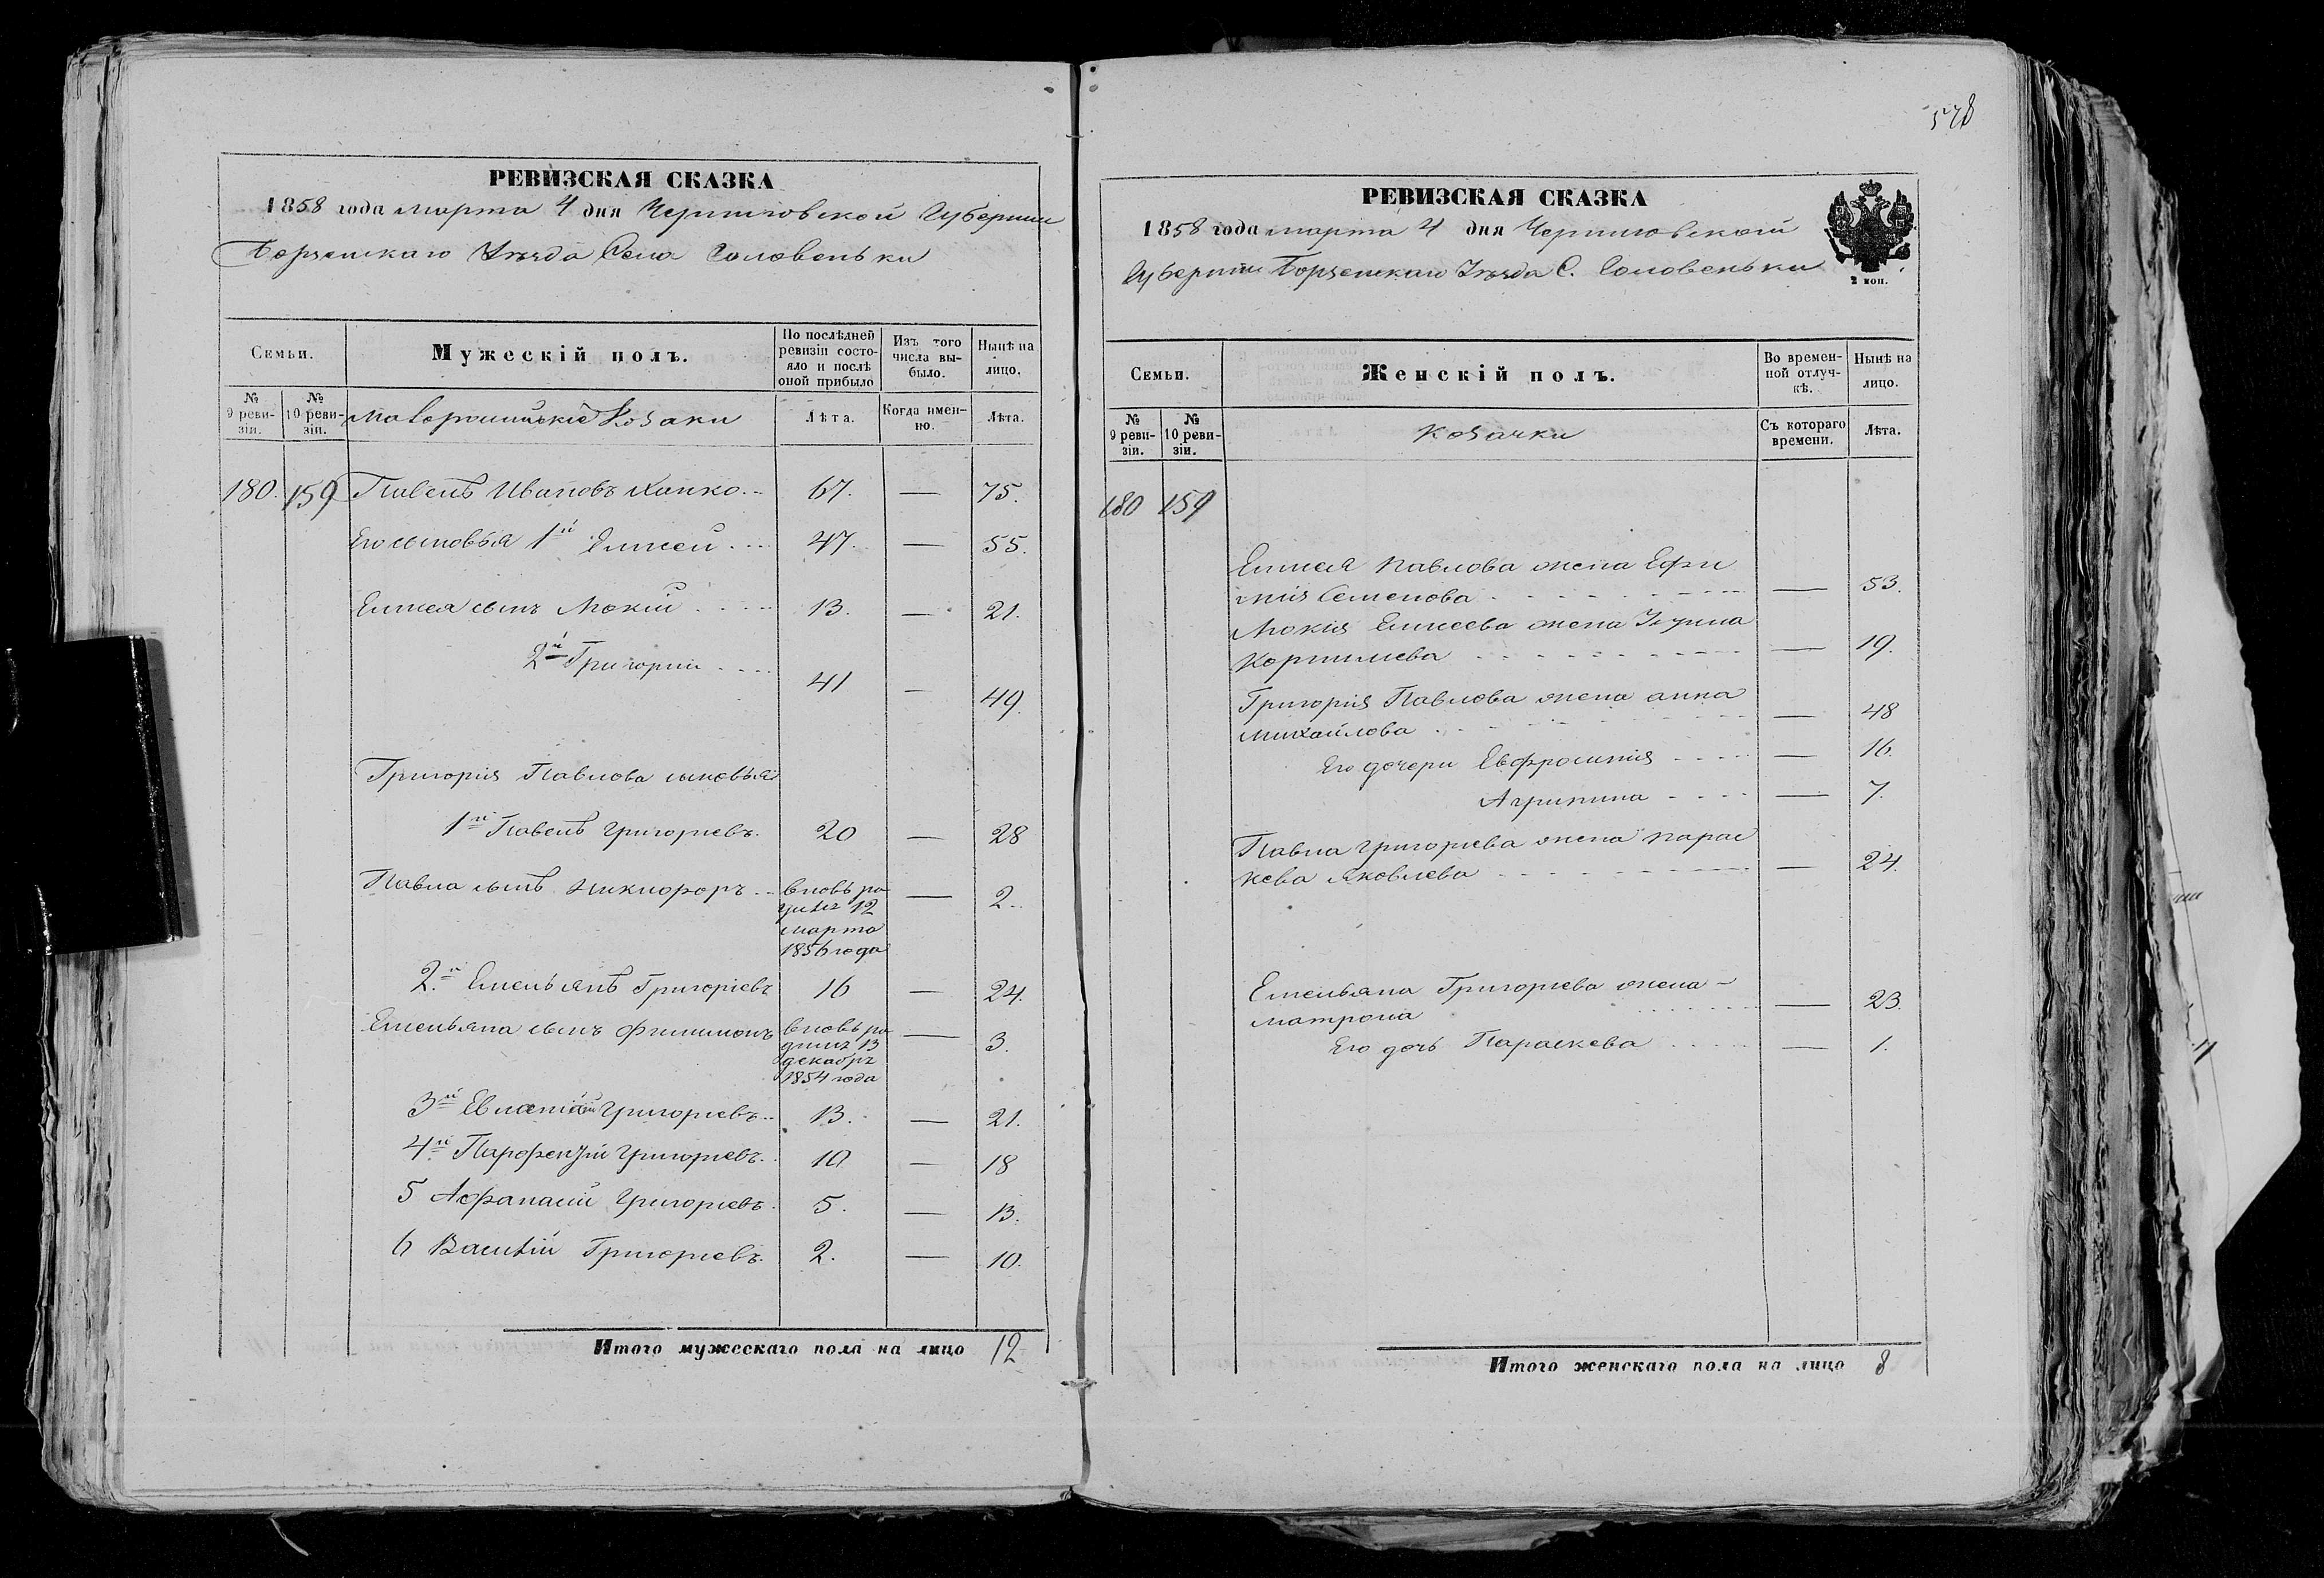 578
РЕВИЗСКАЯ СКАЗКА
1858 года марта 4 дня Черниговской Губернии
Борзенскаго Уѣзда Села Головеньки
Семьи.
Мужескій полъ.
По послѣдней ревизіи состояло и послѣ оной прибыло
Изъ того числа выбыло.
Нынѣ на лицо.
№ 9 ревизіи.
№ 10 ревизіи.
Малороссийскіе Козаки
Лѣта.
Когда именно.
Лѣта.
180. 159 Павелъ Ивановъ .. 67. — 75.
Его сыновья 1й Елисей ... 47. — 55.
Елисея сынъ Мокій .... 13. — 21.
2й Григорий .... 41 — 49.
Григорія Павлова сыновья
1й Павелъ Григориевъ. 20 — 28
Павла сынъ Никифоръ .. вновь ро — 2.
12
марта
1856 года
2.й Емельянъ Григоріевъ 16 — 24.
Емельяна сынъ Филимонъ вновь ро — 3.
дился 13
декабря
1854 года
3й Григориевъ .. 13. — 21.
4й Парфений Григориевъ. 10 — 18
5 Афанасий Григориевъ. 5. — 13.
6 Василій Григориевъ. 2. — 10.
Итого мужескаго пола на лицо 12
РЕВИЗСКАЯ СКАЗКА
1858 года марта 4 дня Черниговской
Губернии Борзенскаго Уѣзда С. Головеньки
2 коп.
Семьи.
Женскій полъ.
Во временной отлучкѣ.
Нынѣ на лицо.
№ 9 ревизіи.
№ 10 ревизіи.
Козачки
Съ котораго времени.
Лѣта.
180 159
Елисея Павлова жена Ефи
мия Семенова — 53.
Мокия Елисеева жена Ирина
Корнилиева — 19.
Григория Павлова жена анна
михайлова — 48
Его дочери Евфросиния — 16.
Агрипина — 7.
Павла григориева жена парас
кева яковлева — 24.
Емельяна Григориева жена -
матрона — 23.
Его дочь Параскева — 1.
Итого женскаго пола на лицо 8